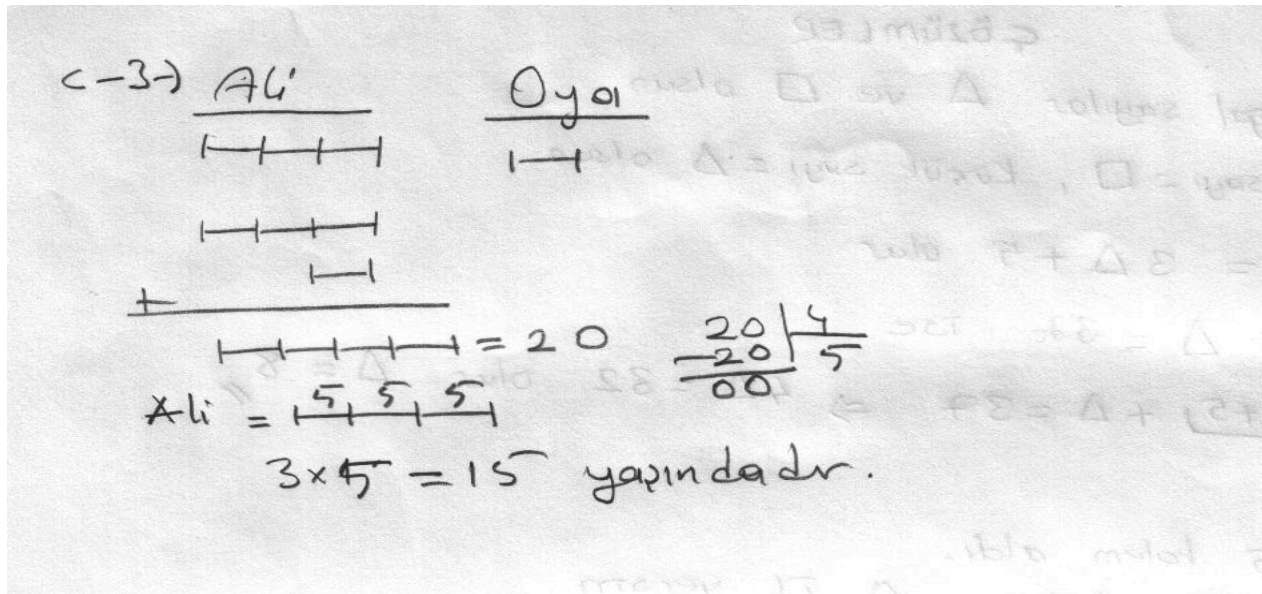 C-3-) Ali Oya
+
= 20
20 | 4
-20 5
00
Ali = 5 5 5
3x5 = 15 yaşındadır.